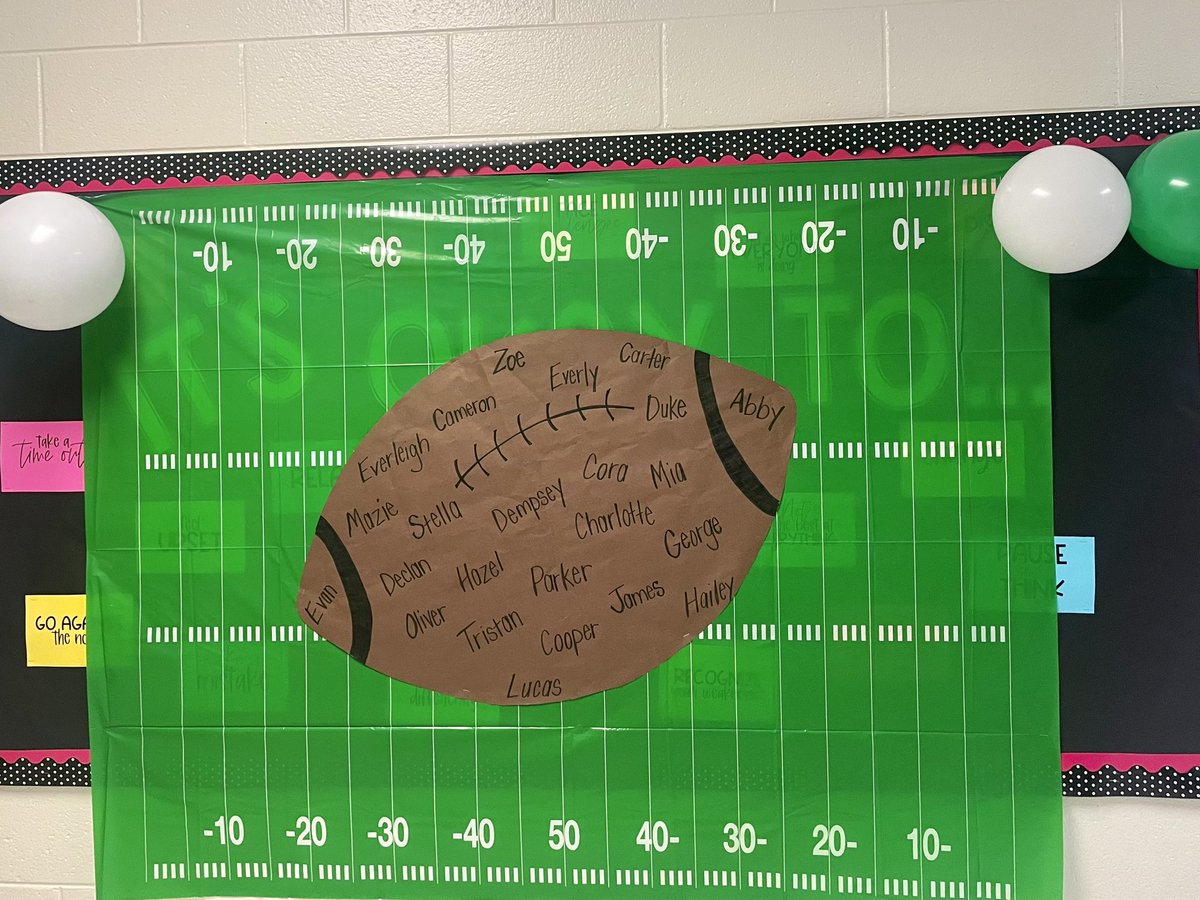 -10 -20 -30 -40 50 -40 -30 -20 -10
IT'S OKAY TO...
Zoe
Carter
Everly
Cameron
Duke
Abby
Everleigh
Cora
Mia
Mazie
Stella
Dempsey
Charlotte
George
Declan
Hazel
Parker
James
Hailey
Evan
Oliver
Tristan
Cooper
Lucas
take a
time out
UPSET
GO AGA
the no
PAUSE
THINK
mistake
RECOGNIZE
-10 -20 -30 -40 50 40- 30- 20- 10-